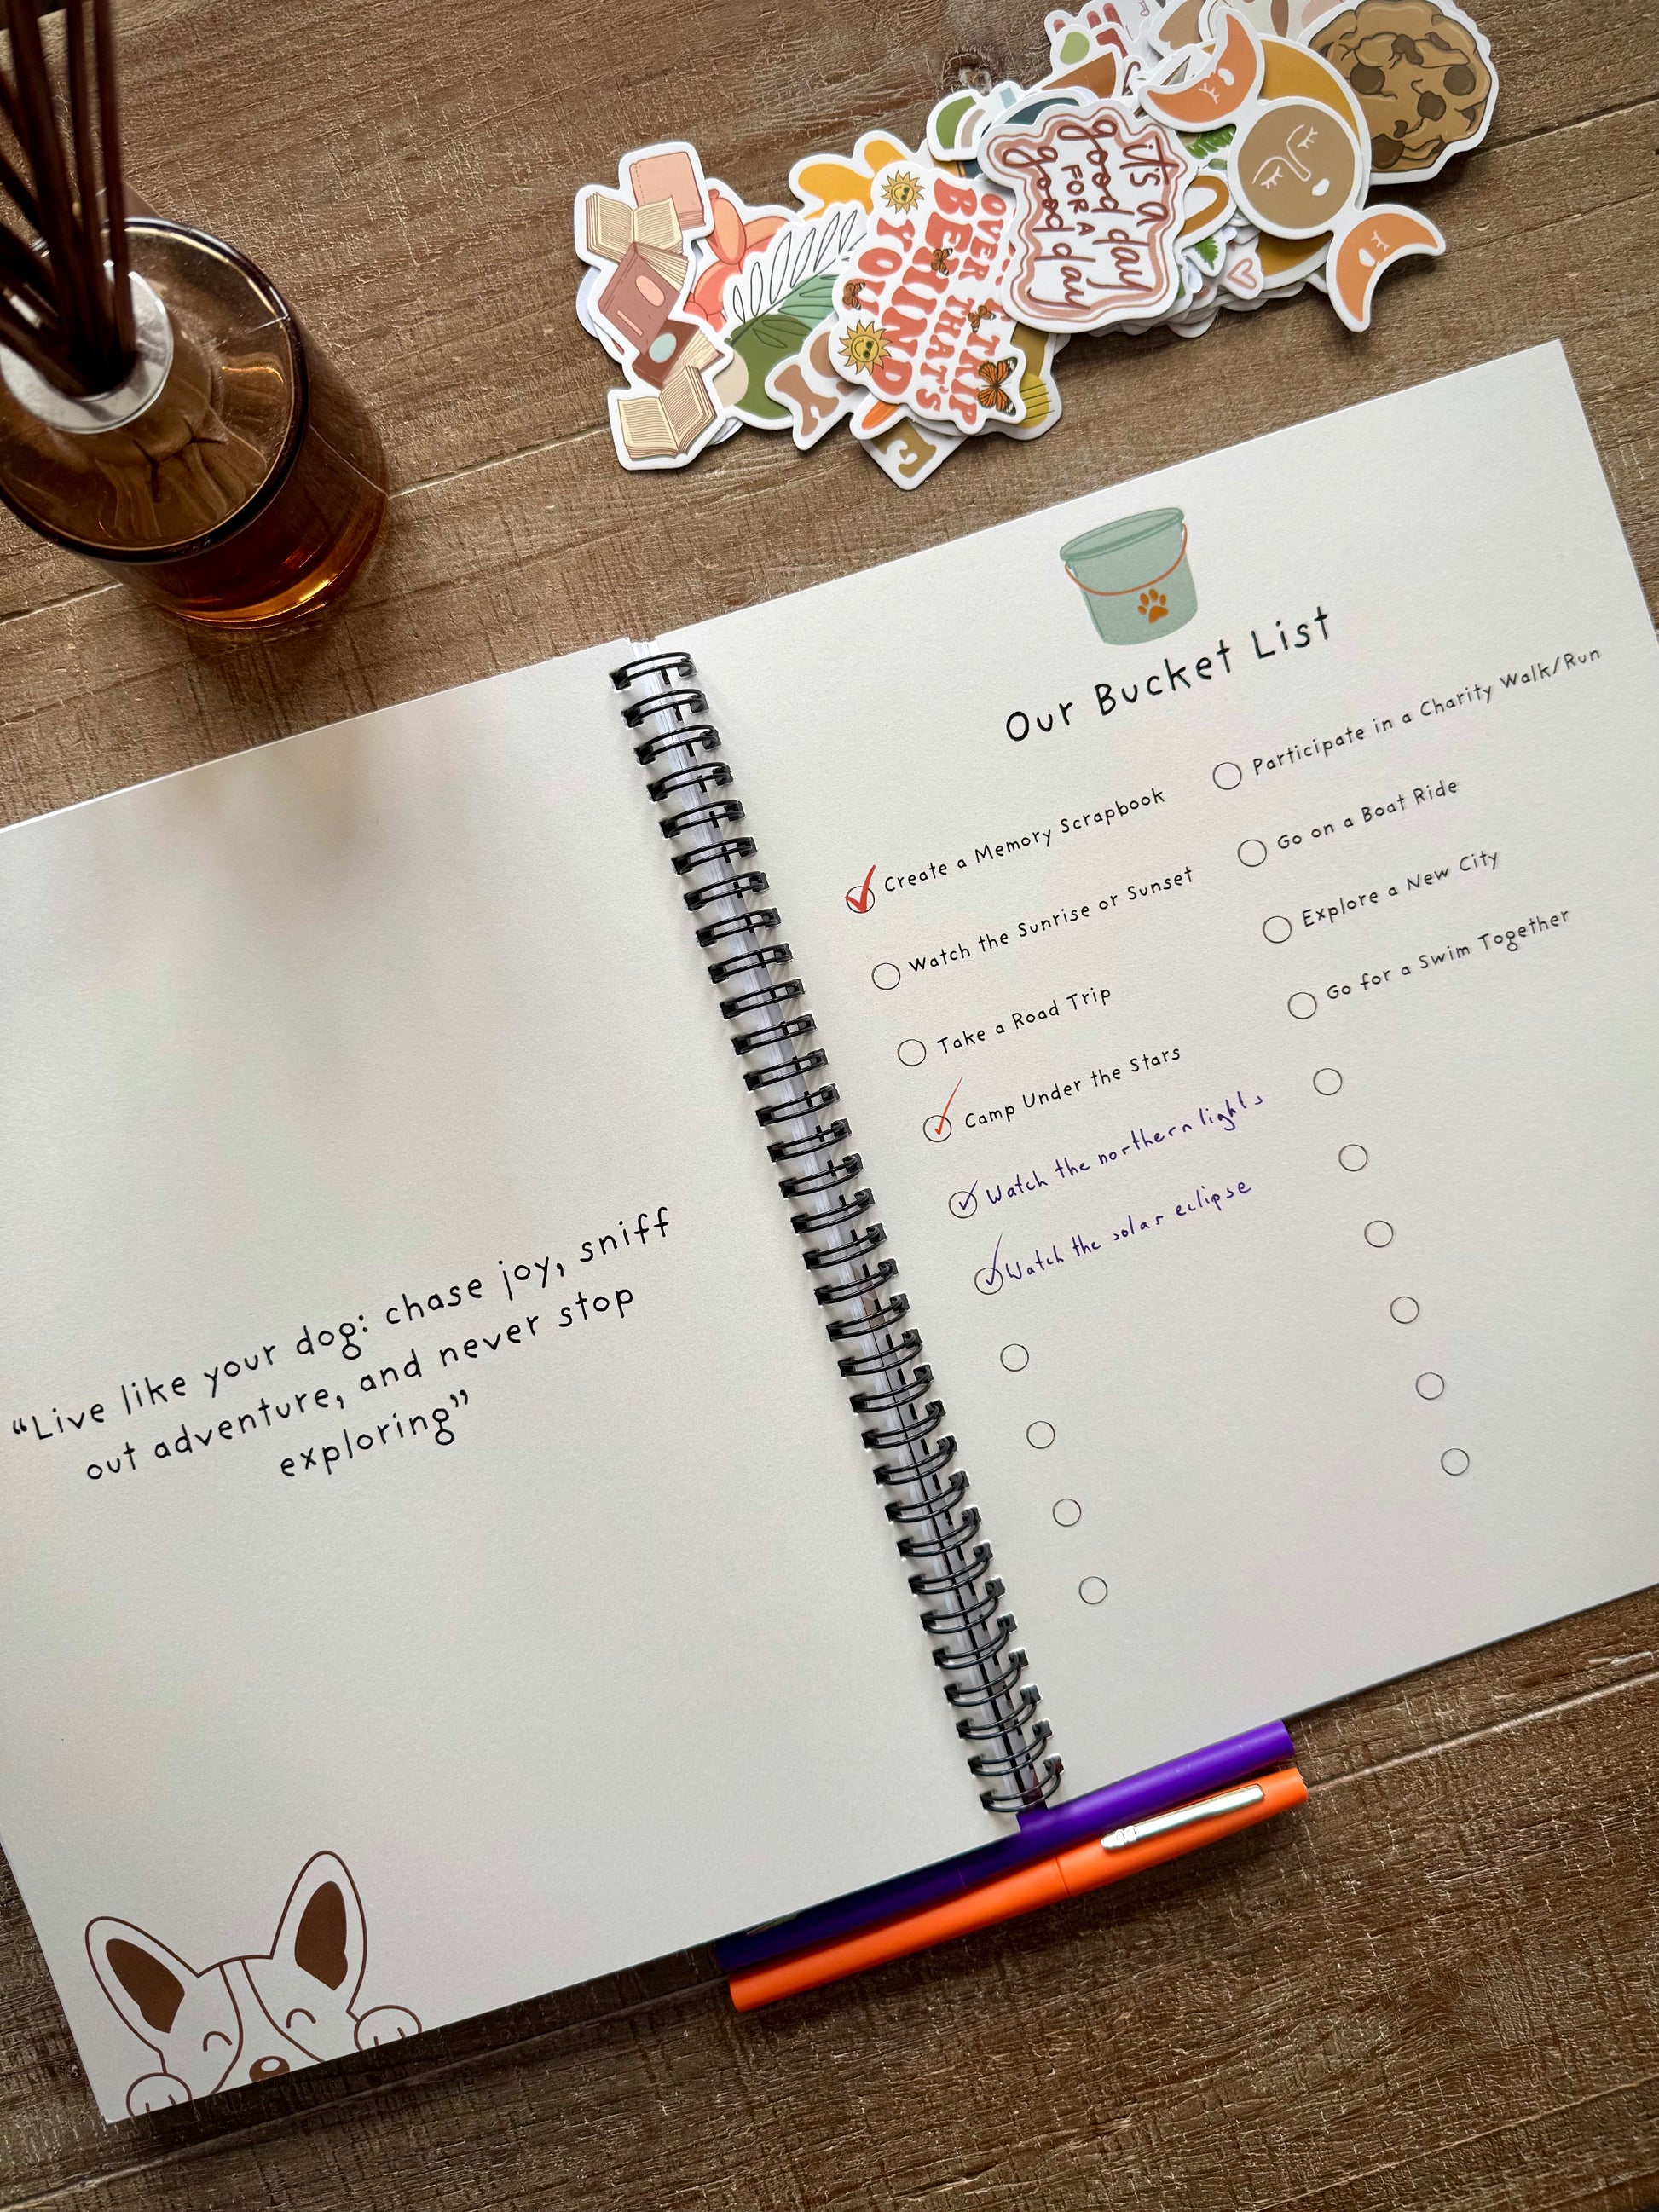 it's a
good day
FOR A
good day
OVER THAT TRIP
BEHIND
YOU
THAT'S
E
Our Bucket List
Create a Memory Scrapbook
Watch the Sunrise or Sunset
Take a Road Trip
Camp Under the Stars
Watch the northern lights
Watch the solar eclipse
Participate in a Charity Walk/Run
Go on a Boat Ride
Explore a New City
Go for a Swim Together
“Live like your dog: chase joy, sniff
out adventure, and never stop
exploring”